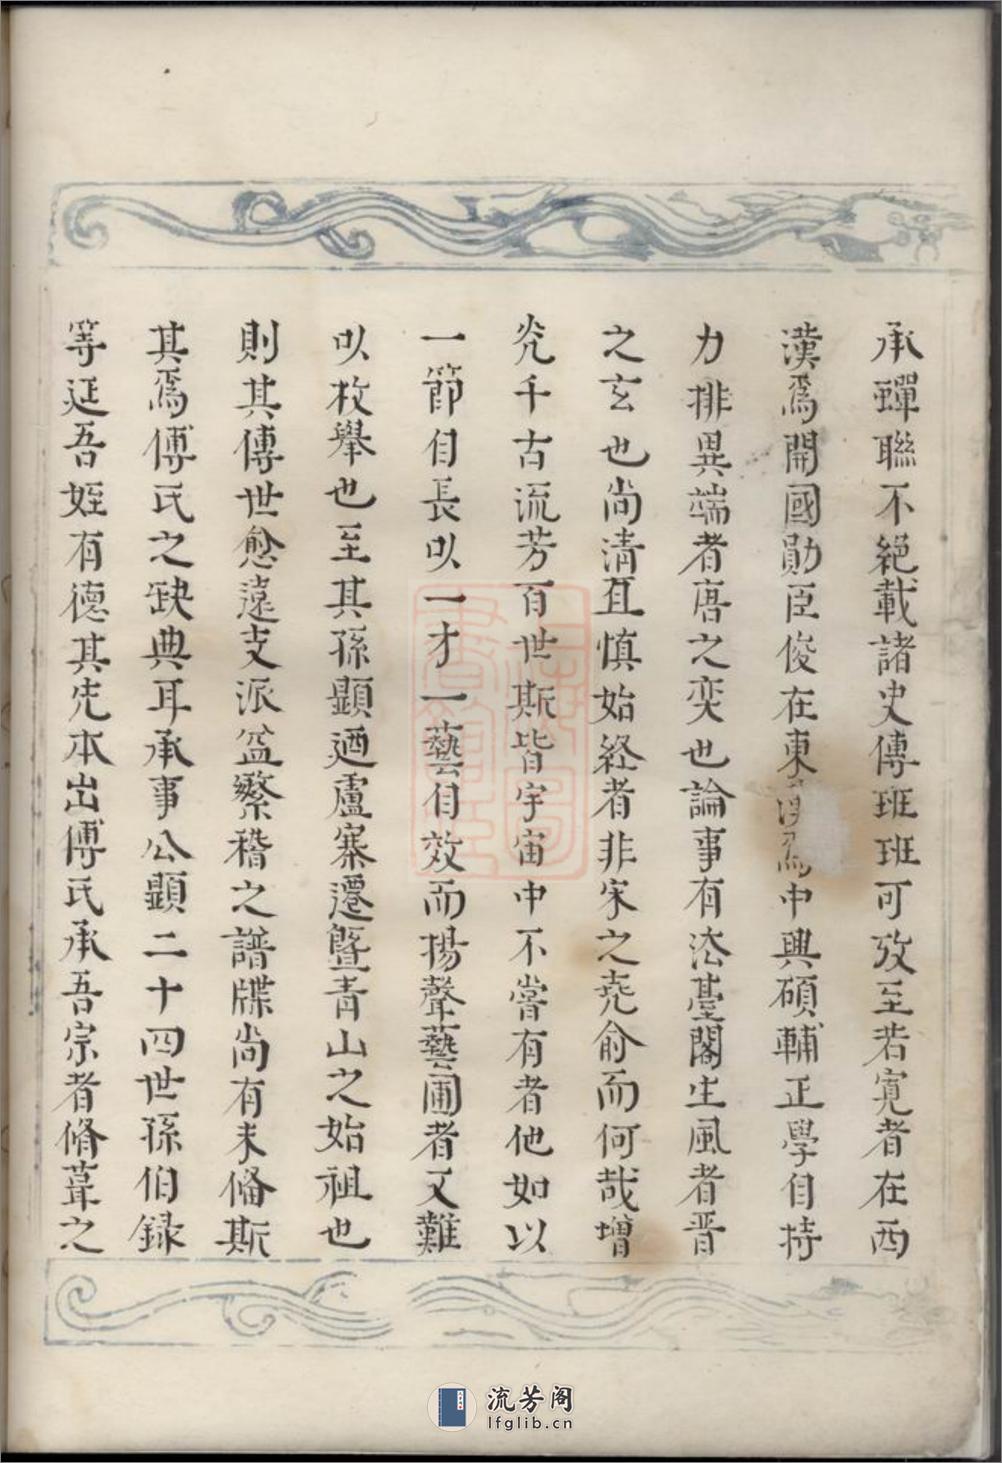 承蟬聯不絕載諸史傳班班可攷至若寛者在西
漢爲開國勛臣俊在東漢爲中興碩輔正學自持
力排異端者唐之奕也論事有法臺閣生風者晋
之玄也尚清且慎始終者非宋之堯俞而何哉增
光千古流芳百世斯皆宇宙中不嘗有者他如以
一節自長以一才一藝自效而揚聲藝圃者又難
以枚舉也至其孫顯迺盧寨遷塈青山之始祖也
則其傳世愈遠支派益繁稽之譜牒尚有未俻斯
其爲傅氏之缺典耳承事公顯二十四世孫伯録
等延吾姪有德其先本出傅氏承吾宗者脩葺之
流芳阁
lfglib.cn